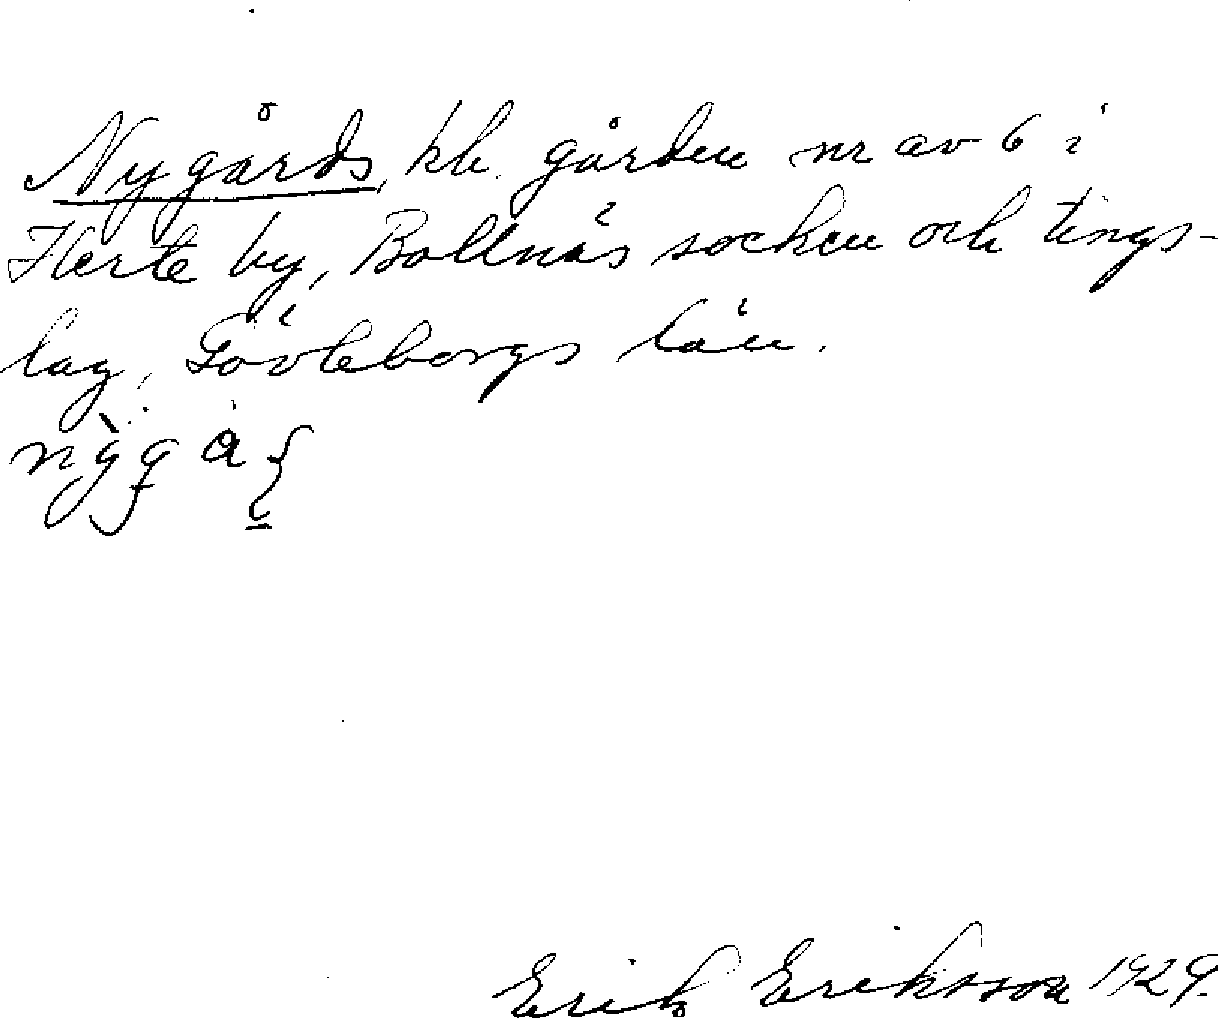 Nygårds, kh. gården nr av 6 i
Herte by, Bollnäs socken och tings-
lag, Gävleborgs län.
Erik Eriksson 1929.